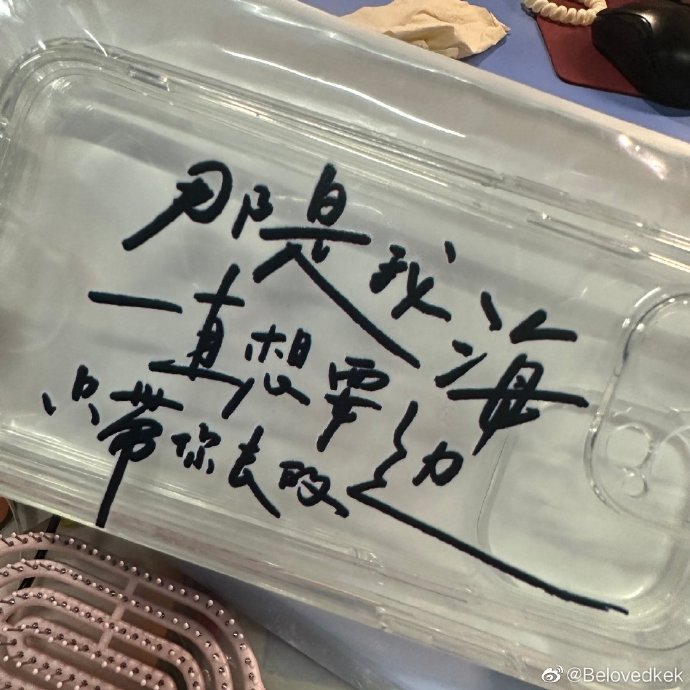 那是我
一直想要
只带你去的
海边
@Belovedkek